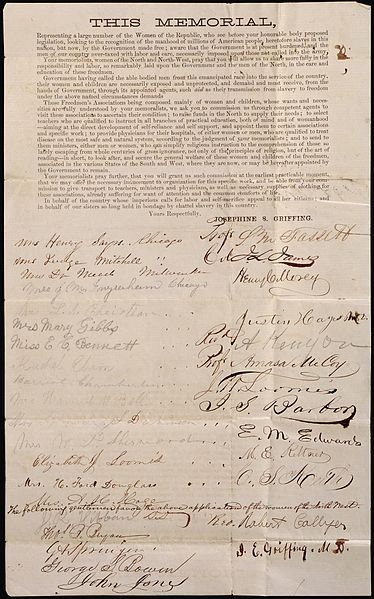 THIS MEMORIAL,
Representing a large number of the Women of the Republic, who see before your honorable body proposed
legislation, looking to the recognition of the manhood of millions of American people, heretofore slaves in this
nation, but now, by the Government made free; aware that the Government is at present burdened, and the
men of our country over-taxed with labor and care, necessarily imposed upon those not called into the army,
Your memorialists, women of the North and North-West, pray that you will allow us to share more fully in the
responsibility and labor, so remarkably laid upon the Government and the men of the North, in the care and
education of these freedmen.
Government having called the able-bodied men from this emancipated race into the service of the country,
their women and children are necessarily exposed and unprotected, and demand and must receive, from the
hands of Government, through its appointed agents, such aid as their transmission from slavery to freedom
under the above named circumstances demands
These Freedmen's Associations being composed mainly of women and children, whose wants and neces-
sities are fully understood by your memorialists, we ask you to commission us through competent agents to
visit these associations to ascertain their condition; to raise funds in the North to supply their needs; to select
teachers who are qualified to instruct in all branches of practical education, both of mind and of womanhood
—aiming at the direct development of self-reliance and self support, and appoint them to certain associations
and specific work; to provide physicians for their hospitals, of either women or men, who are qualified to treat
disease on the most safe and scientific principles, according to the judgment of your memorialists; and to send to
them ministers, either men or women, who can simplify religious instruction to the comprehension of those so
lately escaping from whole centuries of gross ignorance, not only of the principles of religion, but of the art of
reading—in short, to look after, and secure the general welfare of these women and children of the freedmen,
associated in the various States of the South and West, where they are now, or may be hereafter appointed by
the Government to remain.
Your memorialists pray further, that you will grant us such commission at the earliest practicable moment,
that we may add the necessary inducement to organization for this specific work, and be able from your com-
mission to give transport to teachers, ministers and physicians, as well as necessary supplies of clothing, for
these associations, already suffering for want of attention and the common comforts of life.
In behalf of the country whose imperious calls for labor and self-sacrifice appeal to all her citizens; and
in behalf of our sisters so long held in bondage by chattel slavery in this country,
Yours Respectfully,
JOSEPHINE S. GRIFFING.
Mrs Henry Sayrs Chicago
Prof S M Fassett
Mrs Judge Mitchell "
C. L. James
Mrs Dr Meech Milwaukee
Henry C Morey
Mrs Chicago
Mrs L. A. Christian
Justin Hayes M.D.
Mrs Mary Gibbs
Miss E. E. Bennett
Rev A Kenyon
Prof Amasa McCoy
Harriet Chamberlin
J. P. Loomis
Mrs
J. S. Barber
Mrs
Mrs W. Shepard
E. M. Edwards
Elizabeth J Loomis
M. E.
Mrs. H. Ford Douglass
C. S.
Mrs. D.
The following gentlemen favor the above application of the women of the North West.
Rev. Robert Collyer
Thos. B. Bryan
J. E. Griffing, M.D.
George S. Bowen
John Jones